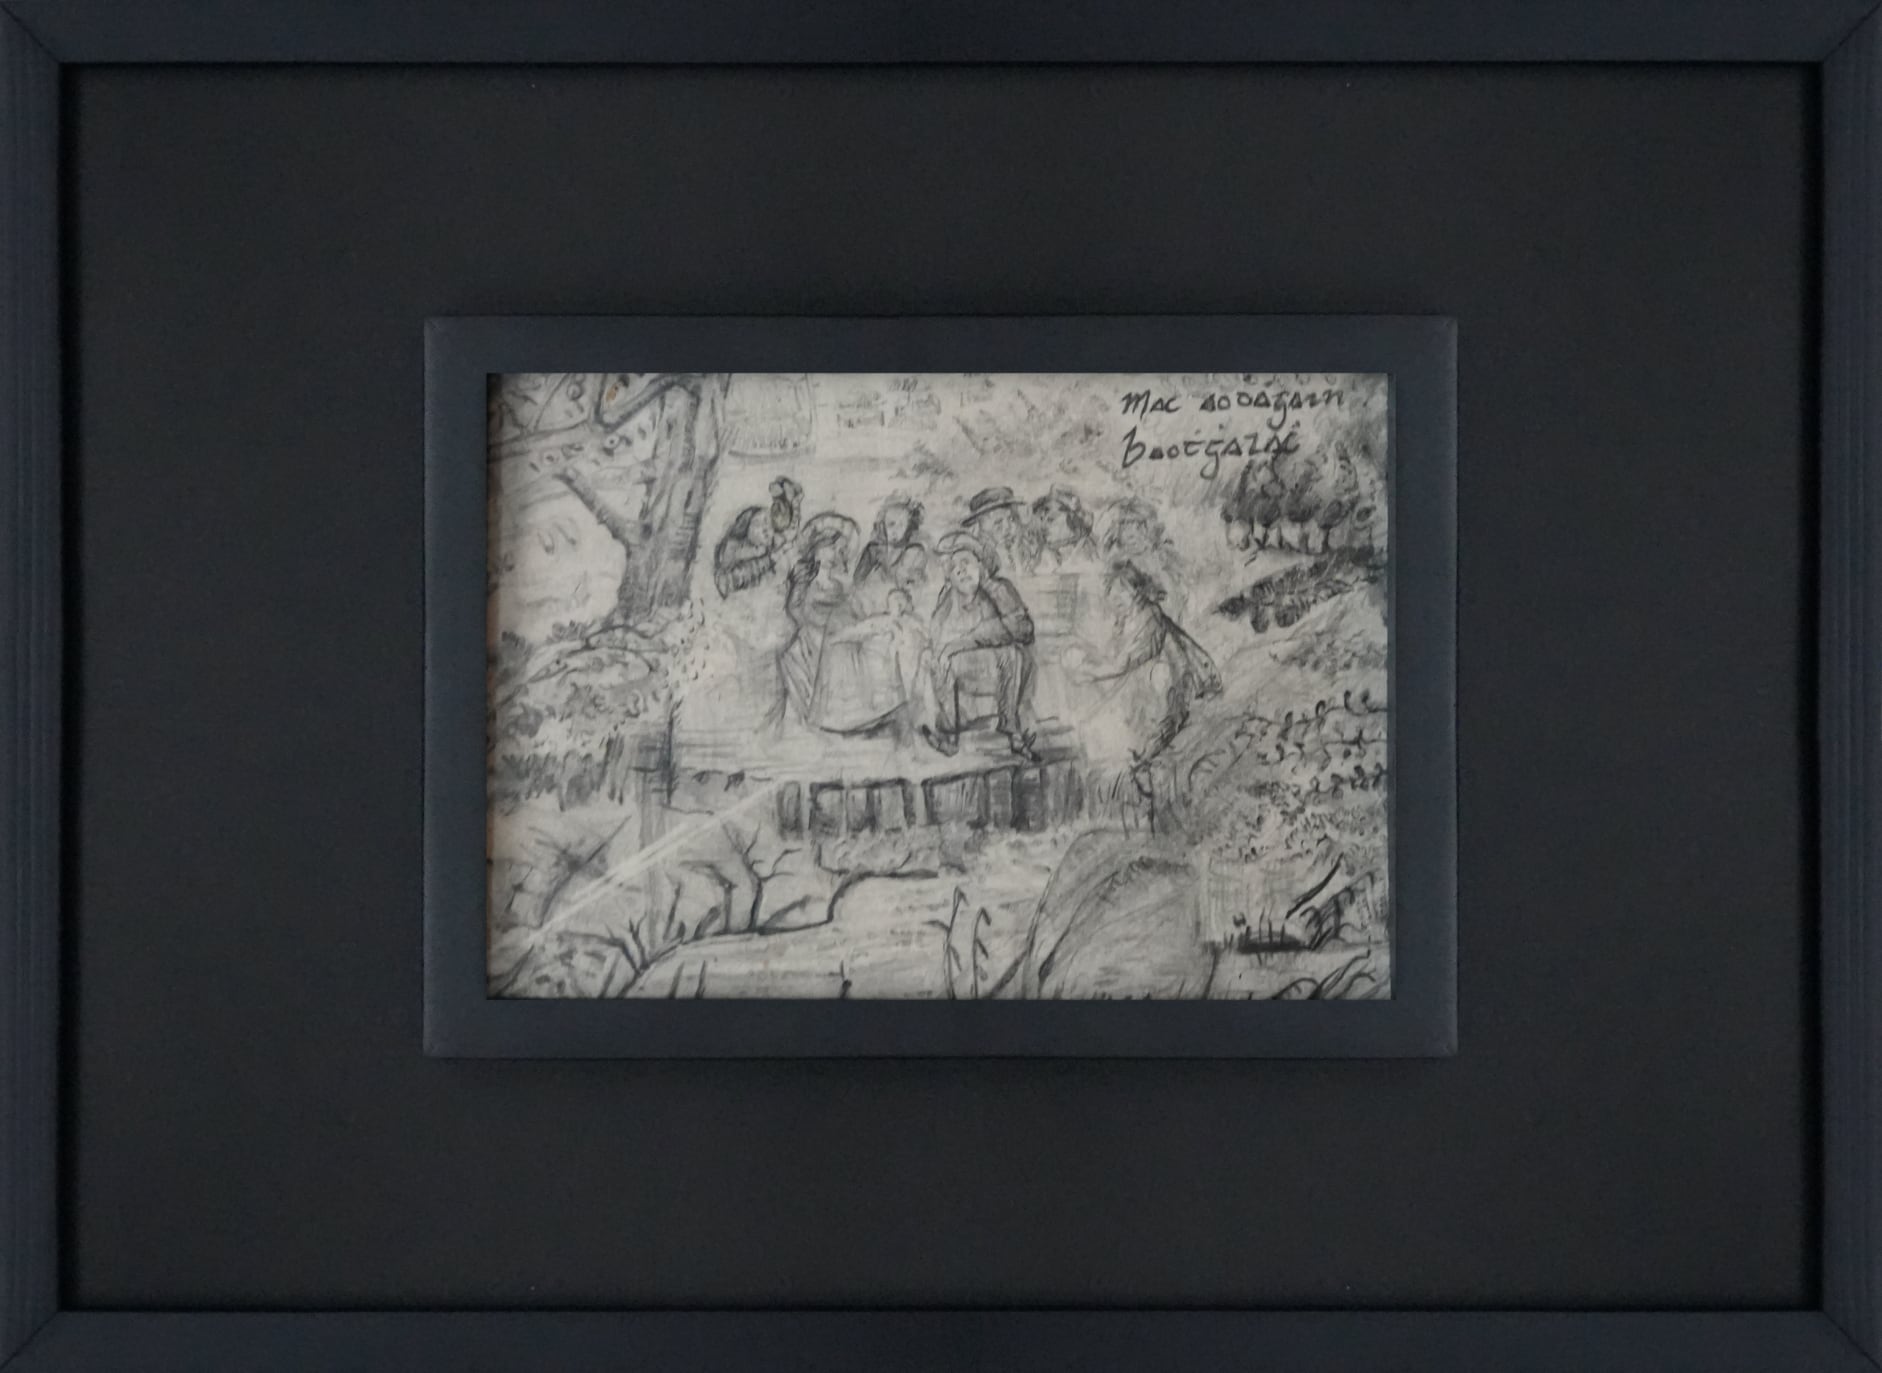 Mac aodagain
baoṫġalaċ